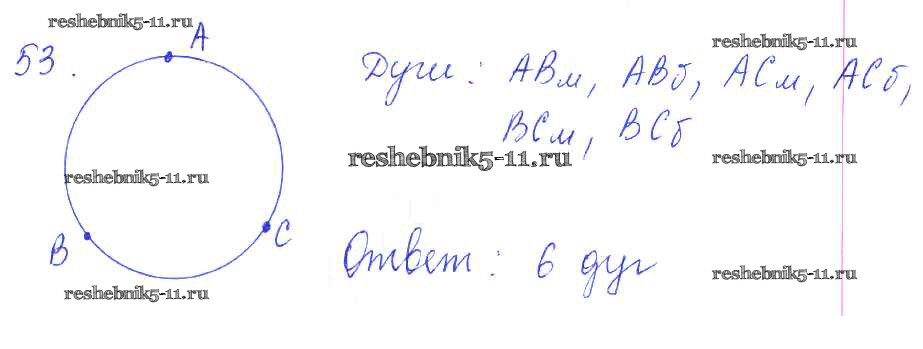 reshebnik5-11.ru
A
53.
reshebnik5-11.ru
Дуги: ABм, ABб, ACм, ACб,
BCм, BCб
reshebnik5-11.ru
reshebnik5-11.ru
reshebnik5-11.ru
B
C
Ответ: 6 дуг
reshebnik5-11.ru
reshebnik5-11.ru